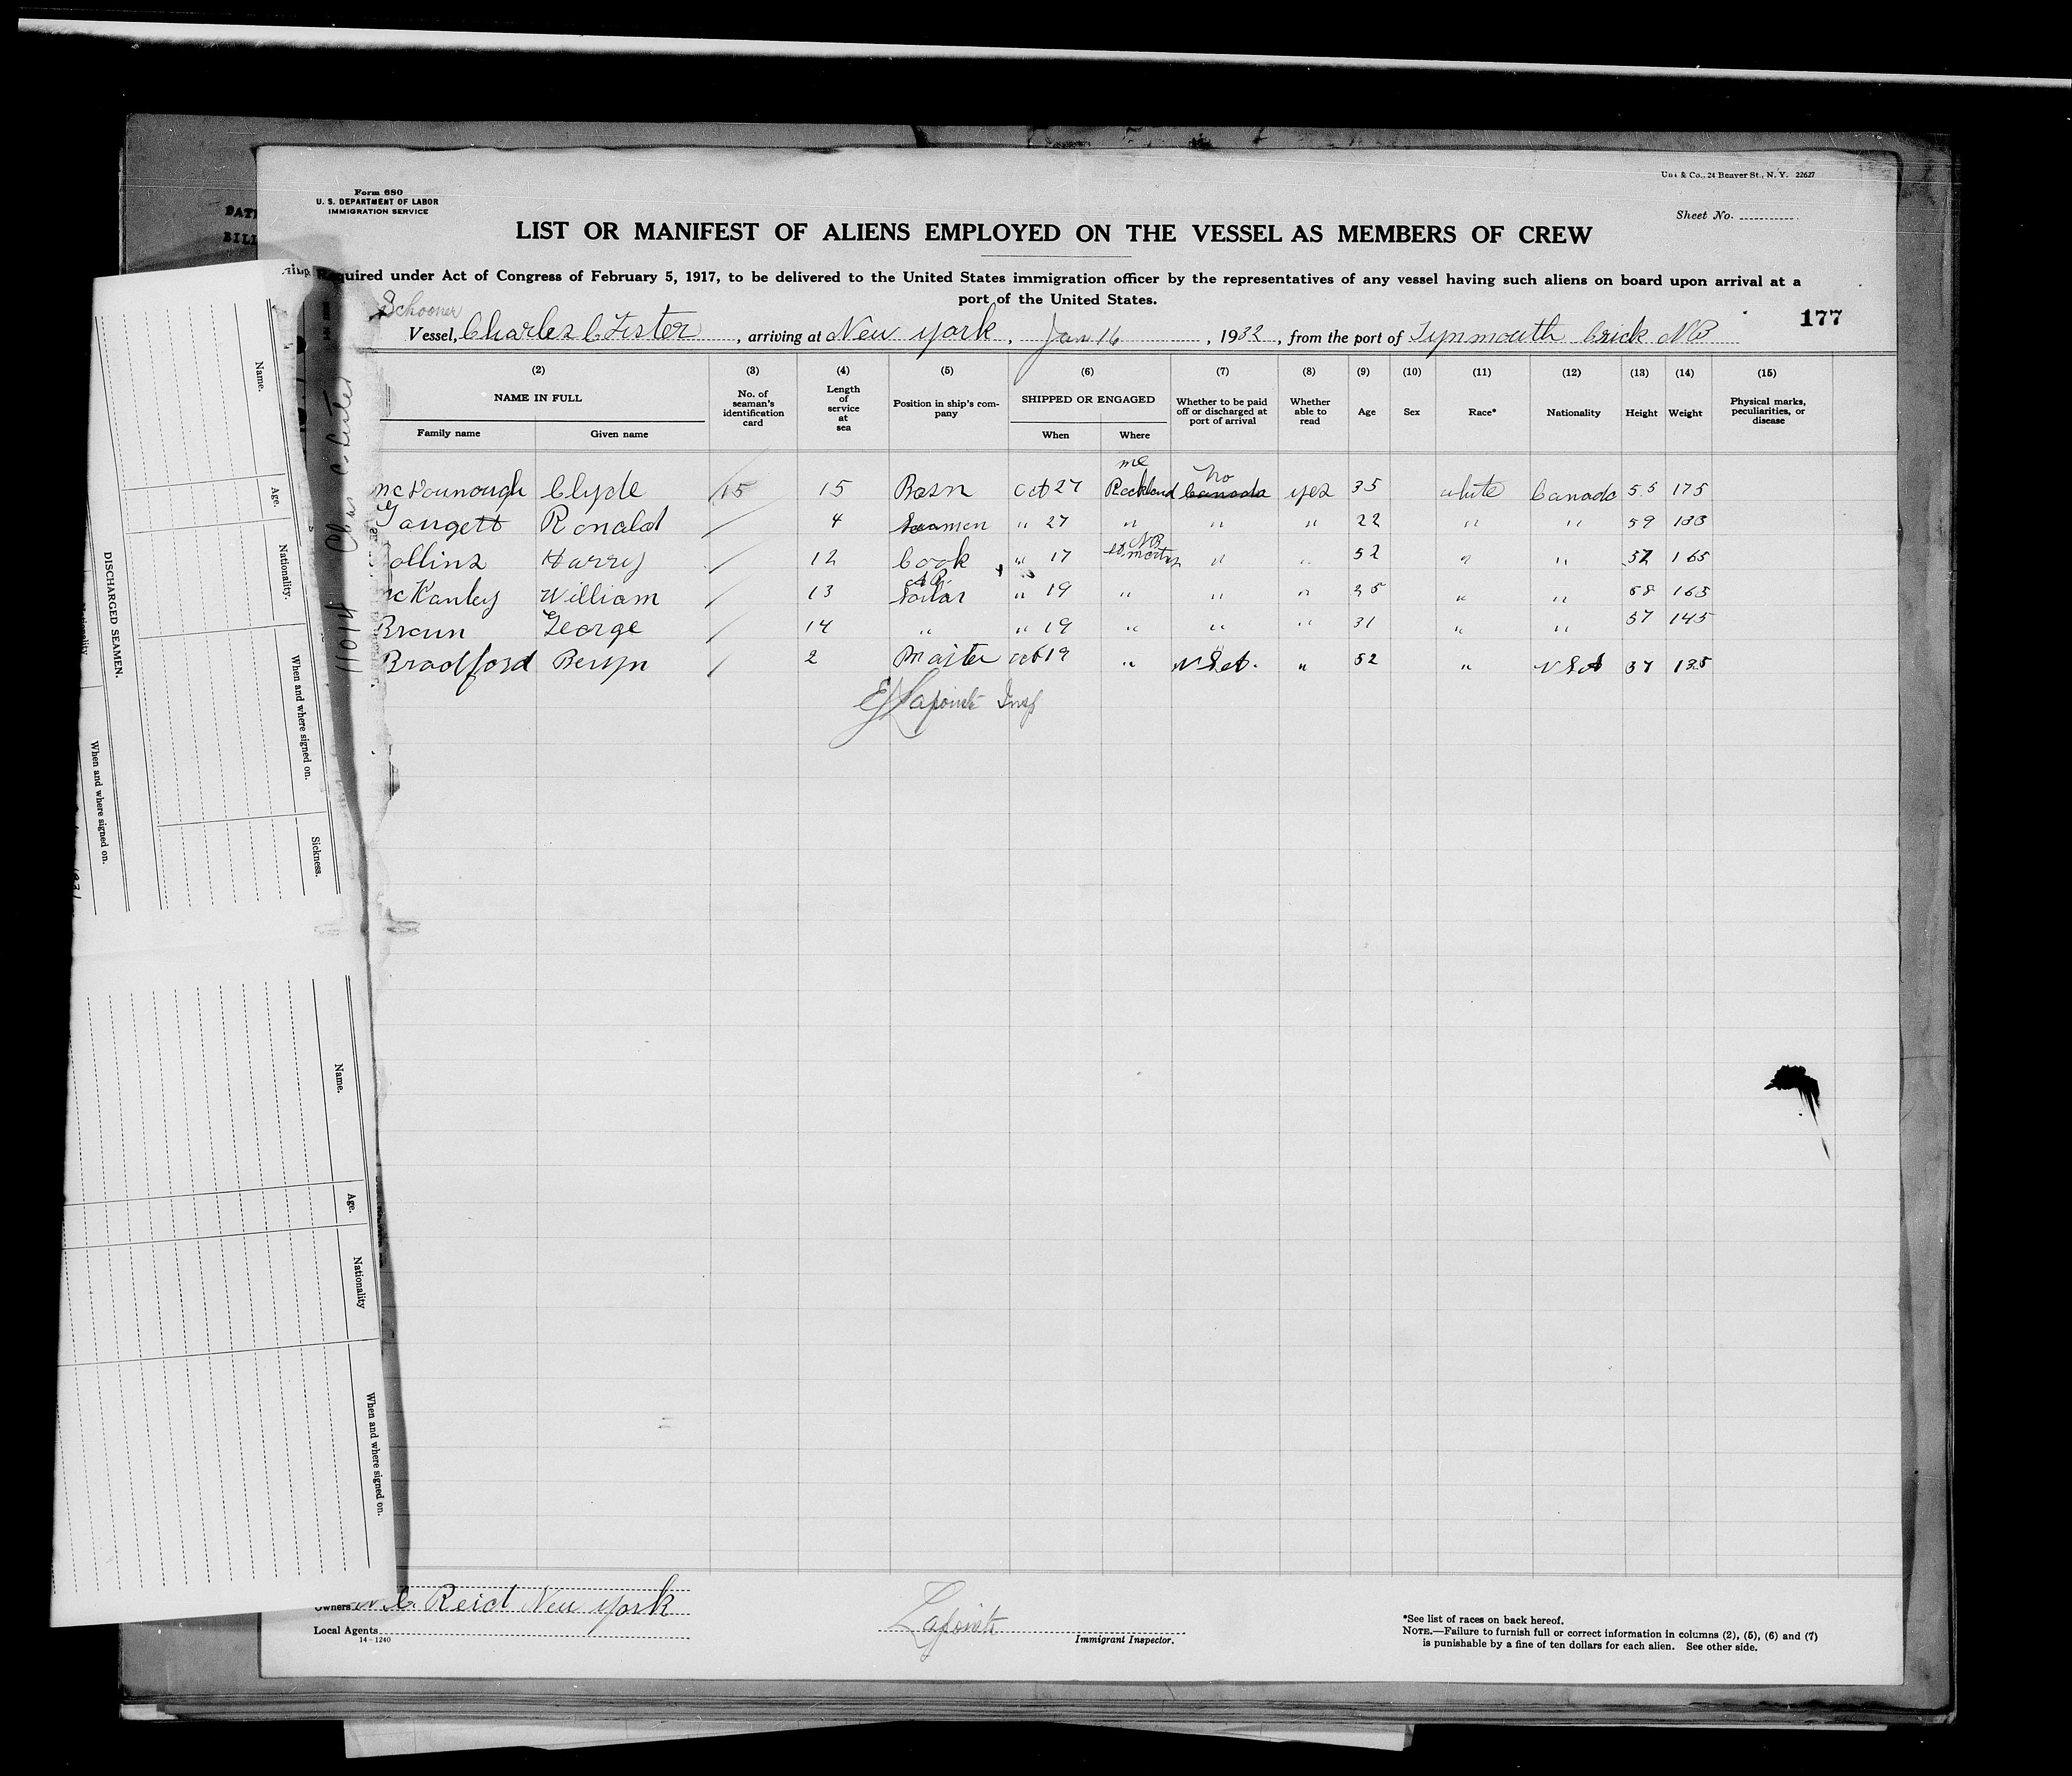 Form 680
U. S. DEPARTMENT OF LABOR
IMMIGRATION SERVICE
& Co., 24 Beaver St., N. Y. 22627
Sheet No.
LIST OR MANIFEST OF ALIENS EMPLOYED ON THE VESSEL AS MEMBERS OF CREW
Required under Act of Congress of February 5, 1917, to be delivered to the United States immigration officer by the representatives of any vessel having such aliens on board upon arrival at a
port of the United States.
177
Schooner
Vessel, Charles C Lister, arriving at New York, Jan 16, 1932, from the port of Tynmouth Crick NB
(2) (3) (4) (5) (6) (7) (8) (9) (10) (11) (12) (13) (14) (15)
NAME IN FULL No. of seaman's identification card Length of service at sea Position in ship's company SHIPPED OR ENGAGED Whether to be paid off or discharged at port of arrival Whether able to read Age Sex Race* Nationality Height Weight Physical marks, peculiarities, or disease
Family name Given name When Where
Clyde 15 15 Bosn Oct 27 Rockland me Canada No yes 35 white Canada 5.5 175
Gangett Ronald / 4 Seamen " 27 " " " 22 " " 59 133
ollins Harry / 12 Cook " 17 St. Martins NB " " 52 " " 52 165
McKanley William / 13 Sailor A B " 19 " " " 25 " " 58 165
Brown George / 14 " " 19 " " " 31 " " 57 145
Bradford Beryn / 2 Master Oct 19 " U S A. " 52 " U S A 57 135
E J Lapointe Insp
Owners Reid New York
Local Agents
14-1240
Lapointe
Immigrant Inspector.
*See list of races on back hereof.
NOTE.—Failure to furnish full or correct information in columns (2), (5), (6) and (7)
is punishable by a fine of ten dollars for each alien. See other side.
11014 Chas C Lister
Name. Age. Nationality. When and where signed on. Sickness.
DISCHARGED SEAMEN.
Nationality When and where signed on.
Name. Age. Nationality When and where signed on.